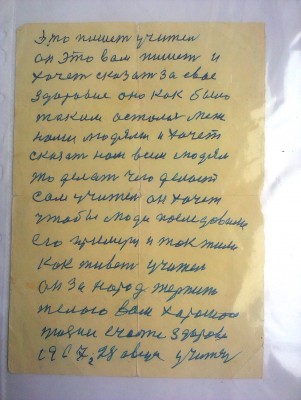 Это пишет учител
он это вам пишет и
хочет сказат за свое
здоровие оно как было
таким осталос меж
нами людями и хочет
сказат нам всем людям
это делат чего делает
сам учител он хочет
чтобы люди последовали
его примеру и так жили
как живет учител
он за народ терпит
желаю вам хорошого
жизни счаств здоровя
1967, 28 учител